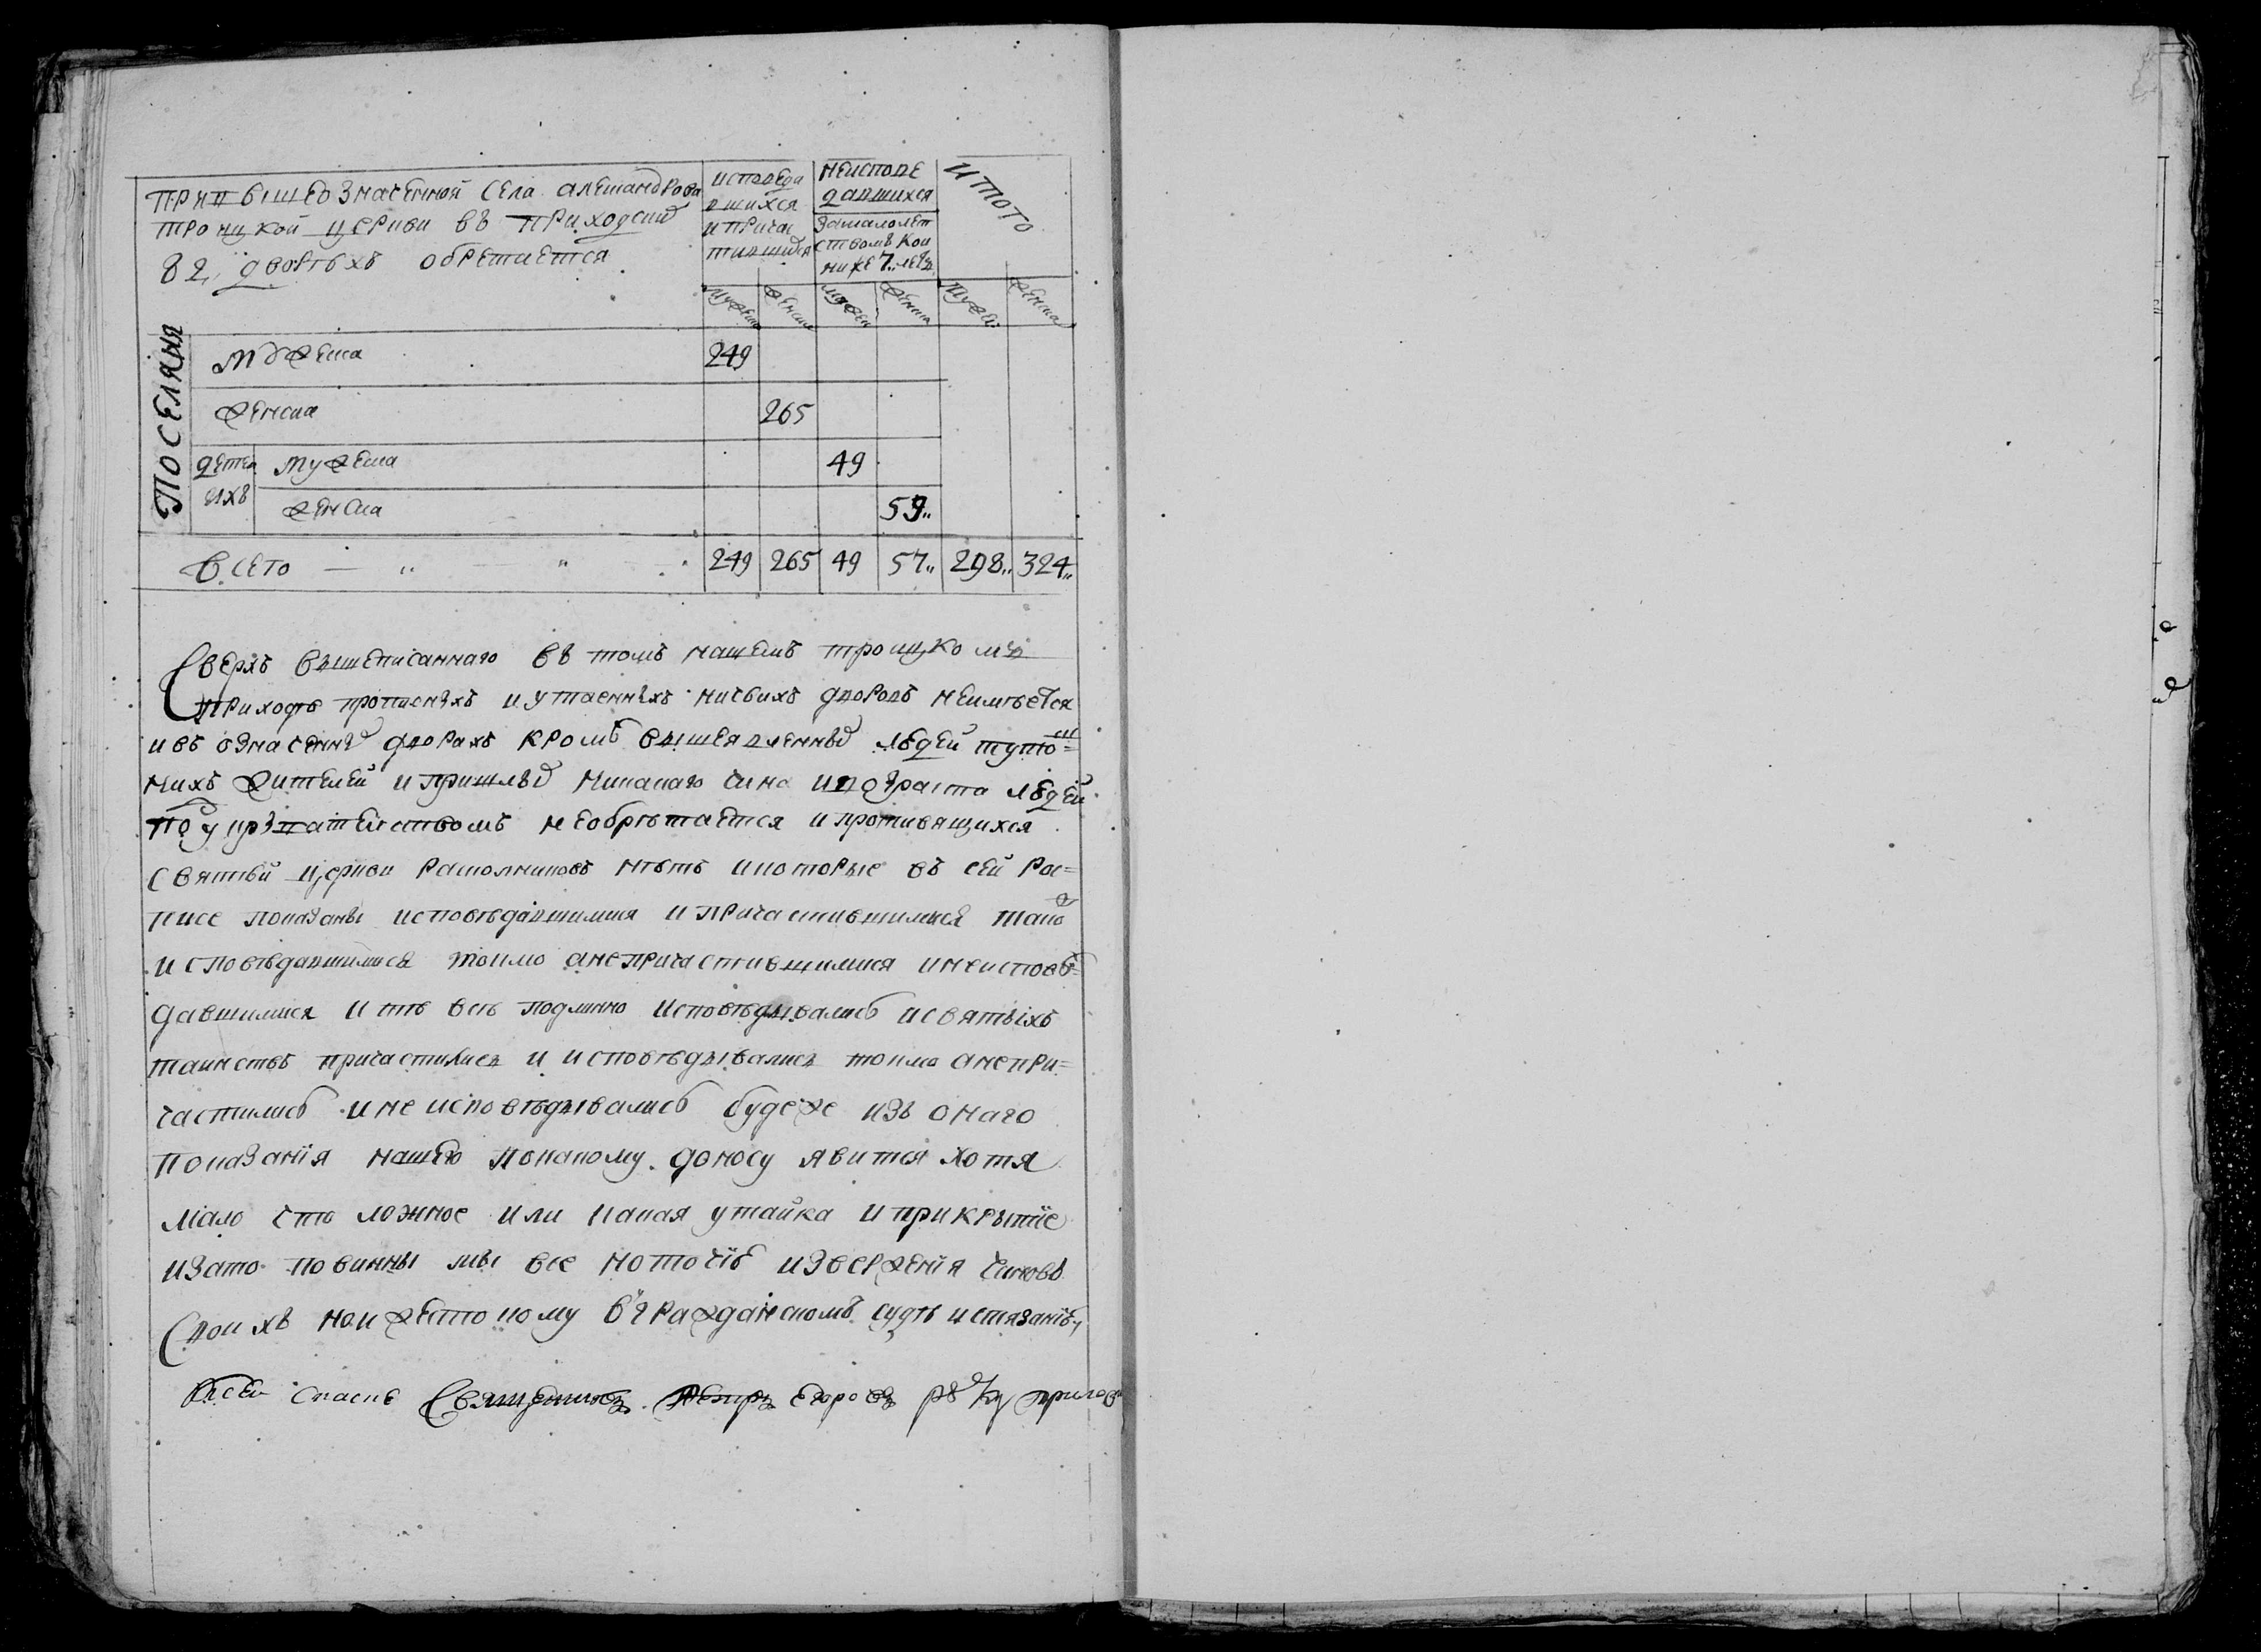 при вышеозначенной села алеѯандрова
троицкой церкви въ приходских
82, дворѣхъ обретается
исповеда
вшихся
и причас
тившихся
неиспове
давшихся
замалолет
ствомъ кои
ниже 7 летъ
итого
мужеска
женска
мужеска
женска
мужеска
женска
поселяня
мужеска 249
женска 265
дети ихъ
мужеска 49
женска 59
всего 249 265 49 57 298 324
Сверхъ вышеписаннаго въ томъ нашемъ троицкомъ
приходѣ прописныхъ и утаенныхъ никакихъ дворовъ неимѣется
и въ означенных дворахъ кромѣ вышеявленных людей тутош=
нихъ жителей и пришлых никакаго чина и возраста людей
под укрывательствомъ необрѣтается и противящихся
святѣй церкви раскольниковъ нѣтъ и которые въ сей рос=
писе показаны исповѣдавшимися и причастившимися також
исповѣдавшимися токмо анепричастившимися и неисповѣ=
давшимися и тѣ всѣ подлинно исповѣдывались и святыхъ
таинствъ причастились и исповѣдывались токмо анепри=
частились и не исповѣдывались будеже изъ онаго
показанія нашего покакому доносу явится хотя
мало что ложное или какая утайка и прикрытіе
и зато повинны мы все неточію изверженія чиновъ
своихъ но и жестокому въ гражданскомъ судѣ истязанію
Священникъ егоровъ руку прилож